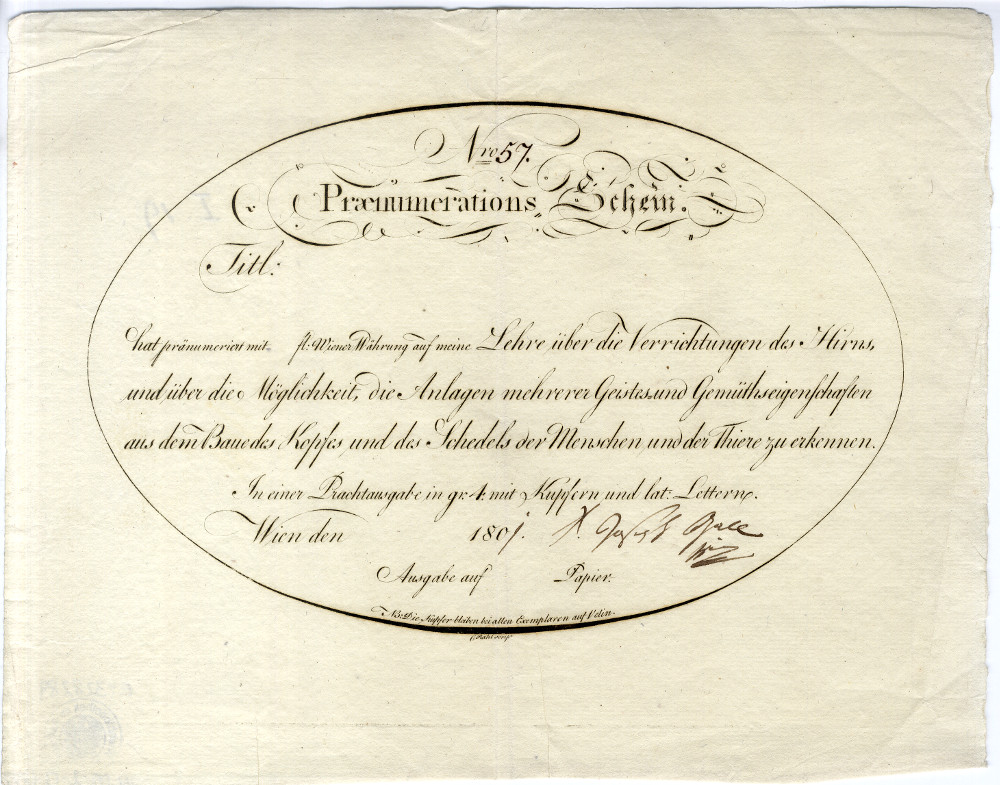 Nro 57.
Prænumerations Schein.
Titl:
hat pränumeriert mit fl: Wiener Währung auf meine Lehre über die Verrichtungen des Hirns,
und über die Möglichkeit, die Anlagen mehrerer Geistes und Gemüthseigenschaften
aus dem Baue des Kopfes, und des Schedels der Menschen und der Thiere zu erkennen.
In einer Prachtausgabe in gr: 4: mit Kupfern und lat: Lettern.
Wien den 180
Ausgabe auf Papier.
NB: Die Kupfer bleiben bei allen Exemplaren auf Velin.